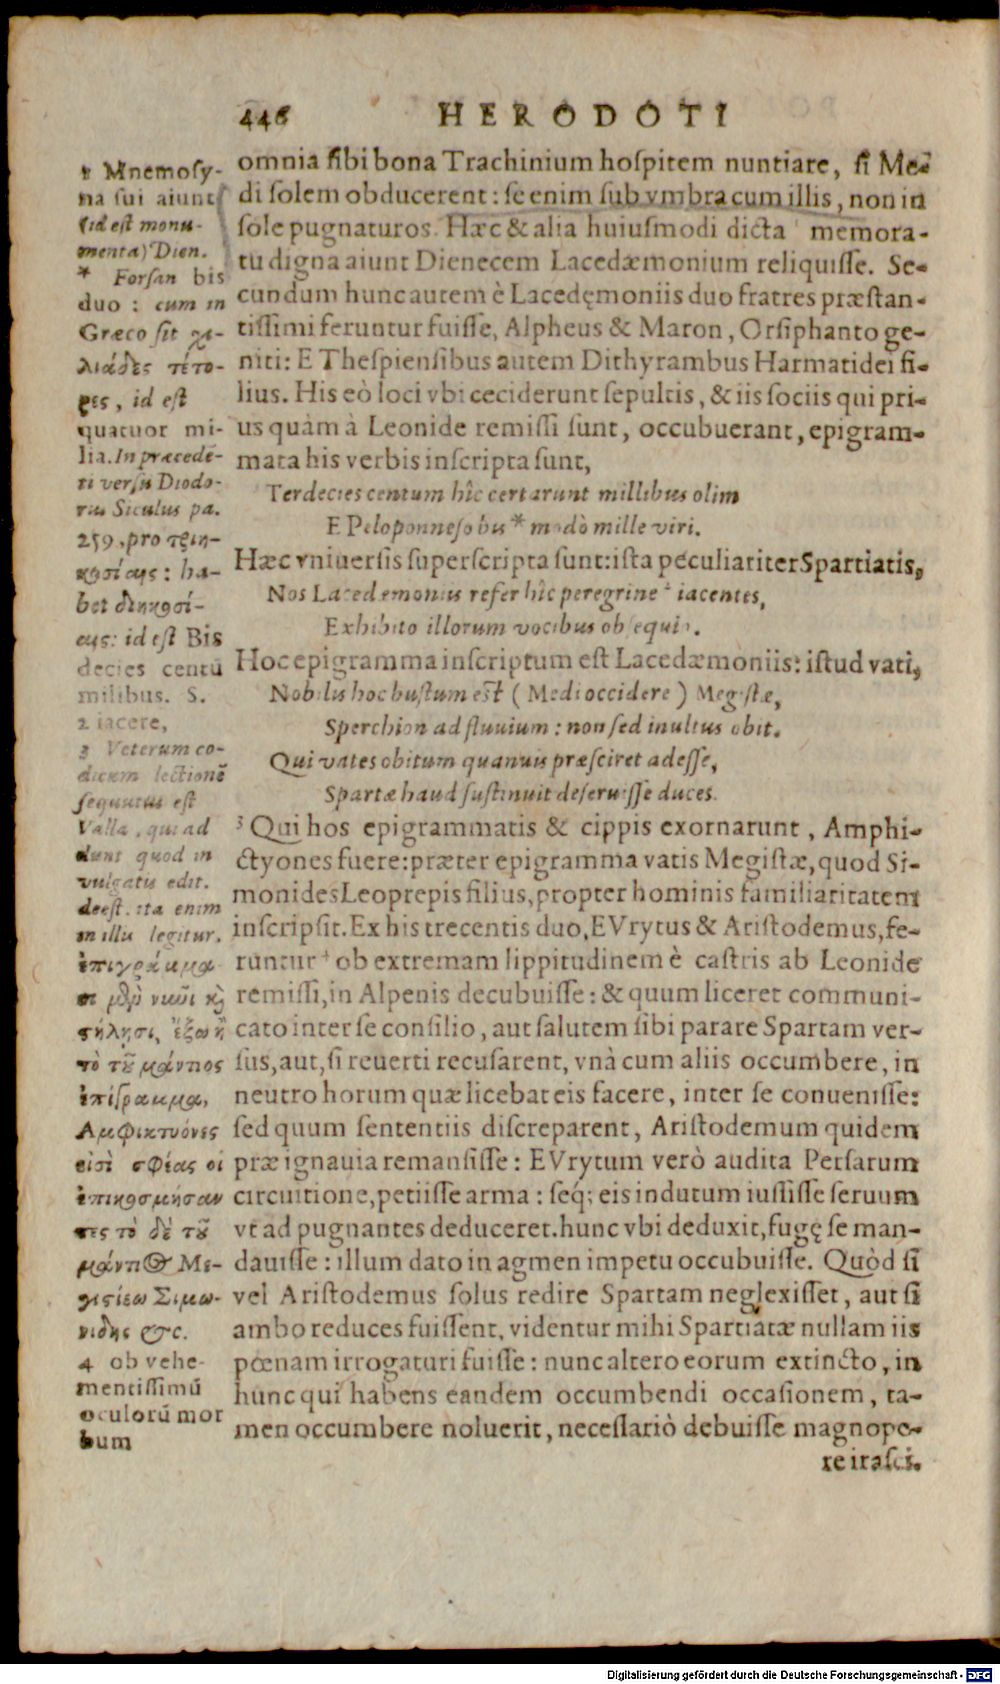 446 HERODOTI
omnia sibi bona Trachinium hospitem nuntiare, si Me-
di solem obducerent: se enim sub vmbra cum illis, non in
sole pugnaturos. Hæc & alia huiusmodi dicta ¹ memora-
tu digna aiunt Dienecem Lacedæmonium reliquisse. Se-
cundum hunc autem è Lacedęmoniis duo fratres præstan-
tissimi feruntur fuisse, Alpheus & Maron, Orsiphanto ge-
niti: E Thespiensibus autem Dithyrambus Harmatidei fi-
lius. His eò loci vbi ceciderunt sepultis, & iis sociis qui pri-
us quàm à Leonide remissi sunt, occubuerant, epigram-
mata his verbis inscripta sunt,
Terdecies centum hîc certarunt millibus olim
E Peloponneso bis * modò mille viri.
Hæc vniuersis superscripta sunt: ista peculiariter Spartiatis,
Nos Lacedemoniis refer hîc peregrine ² iacentes,
Exhibito illorum vocibus obsequio.
Hoc epigramma inscriptum est Lacedæmoniis: istud vati,
Nobilis hoc bustum est (Medi occidere) Megistæ,
Sperchion ad fluuium: non sed inultus obit.
Qui vates obitum quanuis præsciret adesse,
Spartæ haud sustinuit deseruisse duces.
³ Qui hos epigrammatis & cippis exornarunt, Amphi-
ctyones fuere: præter epigramma vatis Megistæ, quod Si-
monides Leoprepis filius, propter hominis familiaritatem
inscripsit. Ex his trecentis duo, EVrytus & Aristodemus, fe-
runtur ⁴ ob extremam lippitudinem è castris ab Leonide
remissi, in Alpenis decubuisse: & quum liceret communi-
cato inter se consilio, aut salutem sibi parare Spartam ver-
sus, aut, si reuerti recusarent, vnà cum aliis occumbere, in
neutro horum quæ licebat eis facere, inter se conuenisse:
sed quum sententiis discreparent, Aristodemum quidem
præ ignauia remansisse: EVrytum verò audita Persarum
circuitione, petiisse arma: seq; eis indutum iussisse seruum
vt ad pugnantes deduceret. hunc vbi deduxit, fugę se man-
dauisse: illum dato in agmen impetu occubuisse. Quòd si
vel Aristodemus solus redire Spartam neglexisset, aut si
ambo reduces fuissent, videntur mihi Spartiatæ nullam iis
pœnam irrogaturi fuisse: nunc altero eorum extincto, in
hunc qui habens eandem occumbendi occasionem, ta-
men occumbere noluerit, necessariò debuisse magnope-
re irasci.
1 Mnemosy-
na sui aiunt
(id est monu-
menta) Dien.
* Forsan bis
duo: cum in
Græco sit χι-
λιάδες τέτο-
ρες, id est
quatuor mi-
lia. In præcedē-
ti versu Diodo-
rus Siculus pa.
259. pro τριη-
κοσίαις: ha-
bet διηκοσί-
αις: id est Bis
decies centū
milibus. S.
2 iacere,
3 Veterum co-
dicum lectionē
sequutus est
Valla, qui ad
dunt quod in
vulgatis edit.
deest. ita enim
in illis legitur.
ἐπιγράμμα-
σι μέν νυν καὶ
στήλησι, ἔξω ἢ
τὸ τοῦ μάντιος
ἐπίγραμμα,
Αμφικτυόνες
εἰσὶ σφέας οἱ
ἐπικοσμήσαν
τες τὸ δὲ τοῦ
μάντιος Με-
γιστίεω Σιμω-
νίδης &c.
4 ob vehe-
mentissimū
oculorū mor
bum
Digitalisierung gefördert durch die Deutsche Forschungsgemeinschaft - DFG